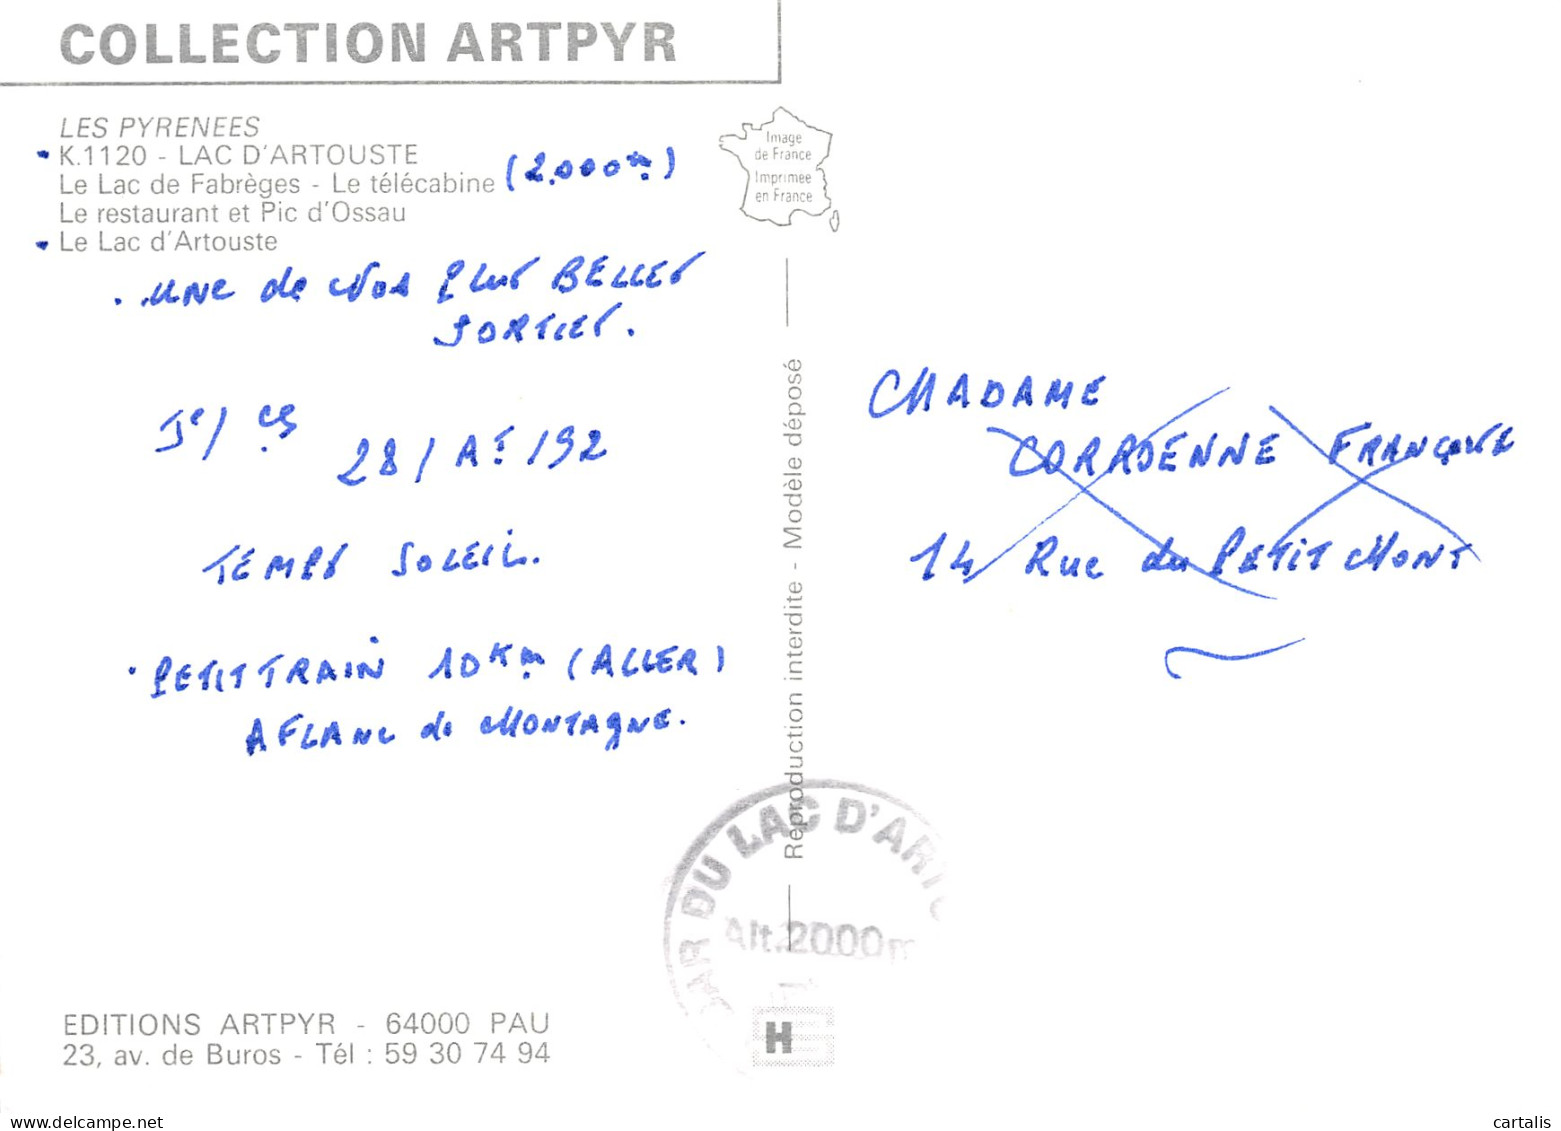 COLLECTION ARTPYR
LES PYRENEES
K.1120 - LAC D'ARTOUSTE
Le Lac de Fabrèges - Le télécabine (2.000m)
Le restaurant et Pic d'Ossau
Le Lac d'Artouste
. UNE de NOS PLUS BELLES
SORTIES.
28/At/92
TEMPS SOLEIL.
. PETIT TRAIN 10Km (ALLER)
A FLANC de MONTAGNE.
EDITIONS ARTPYR - 64000 PAU
23, av. de Buros - Tél : 59 30 74 94
Image
de France
Imprimée
en France
Reproduction interdite - Modèle déposé
MADAME
FRANÇOISE
14 Rue du PETIT MONT
DU LAC D'ARTO
Alt. 2000m
H
delcampe.net
cartalis